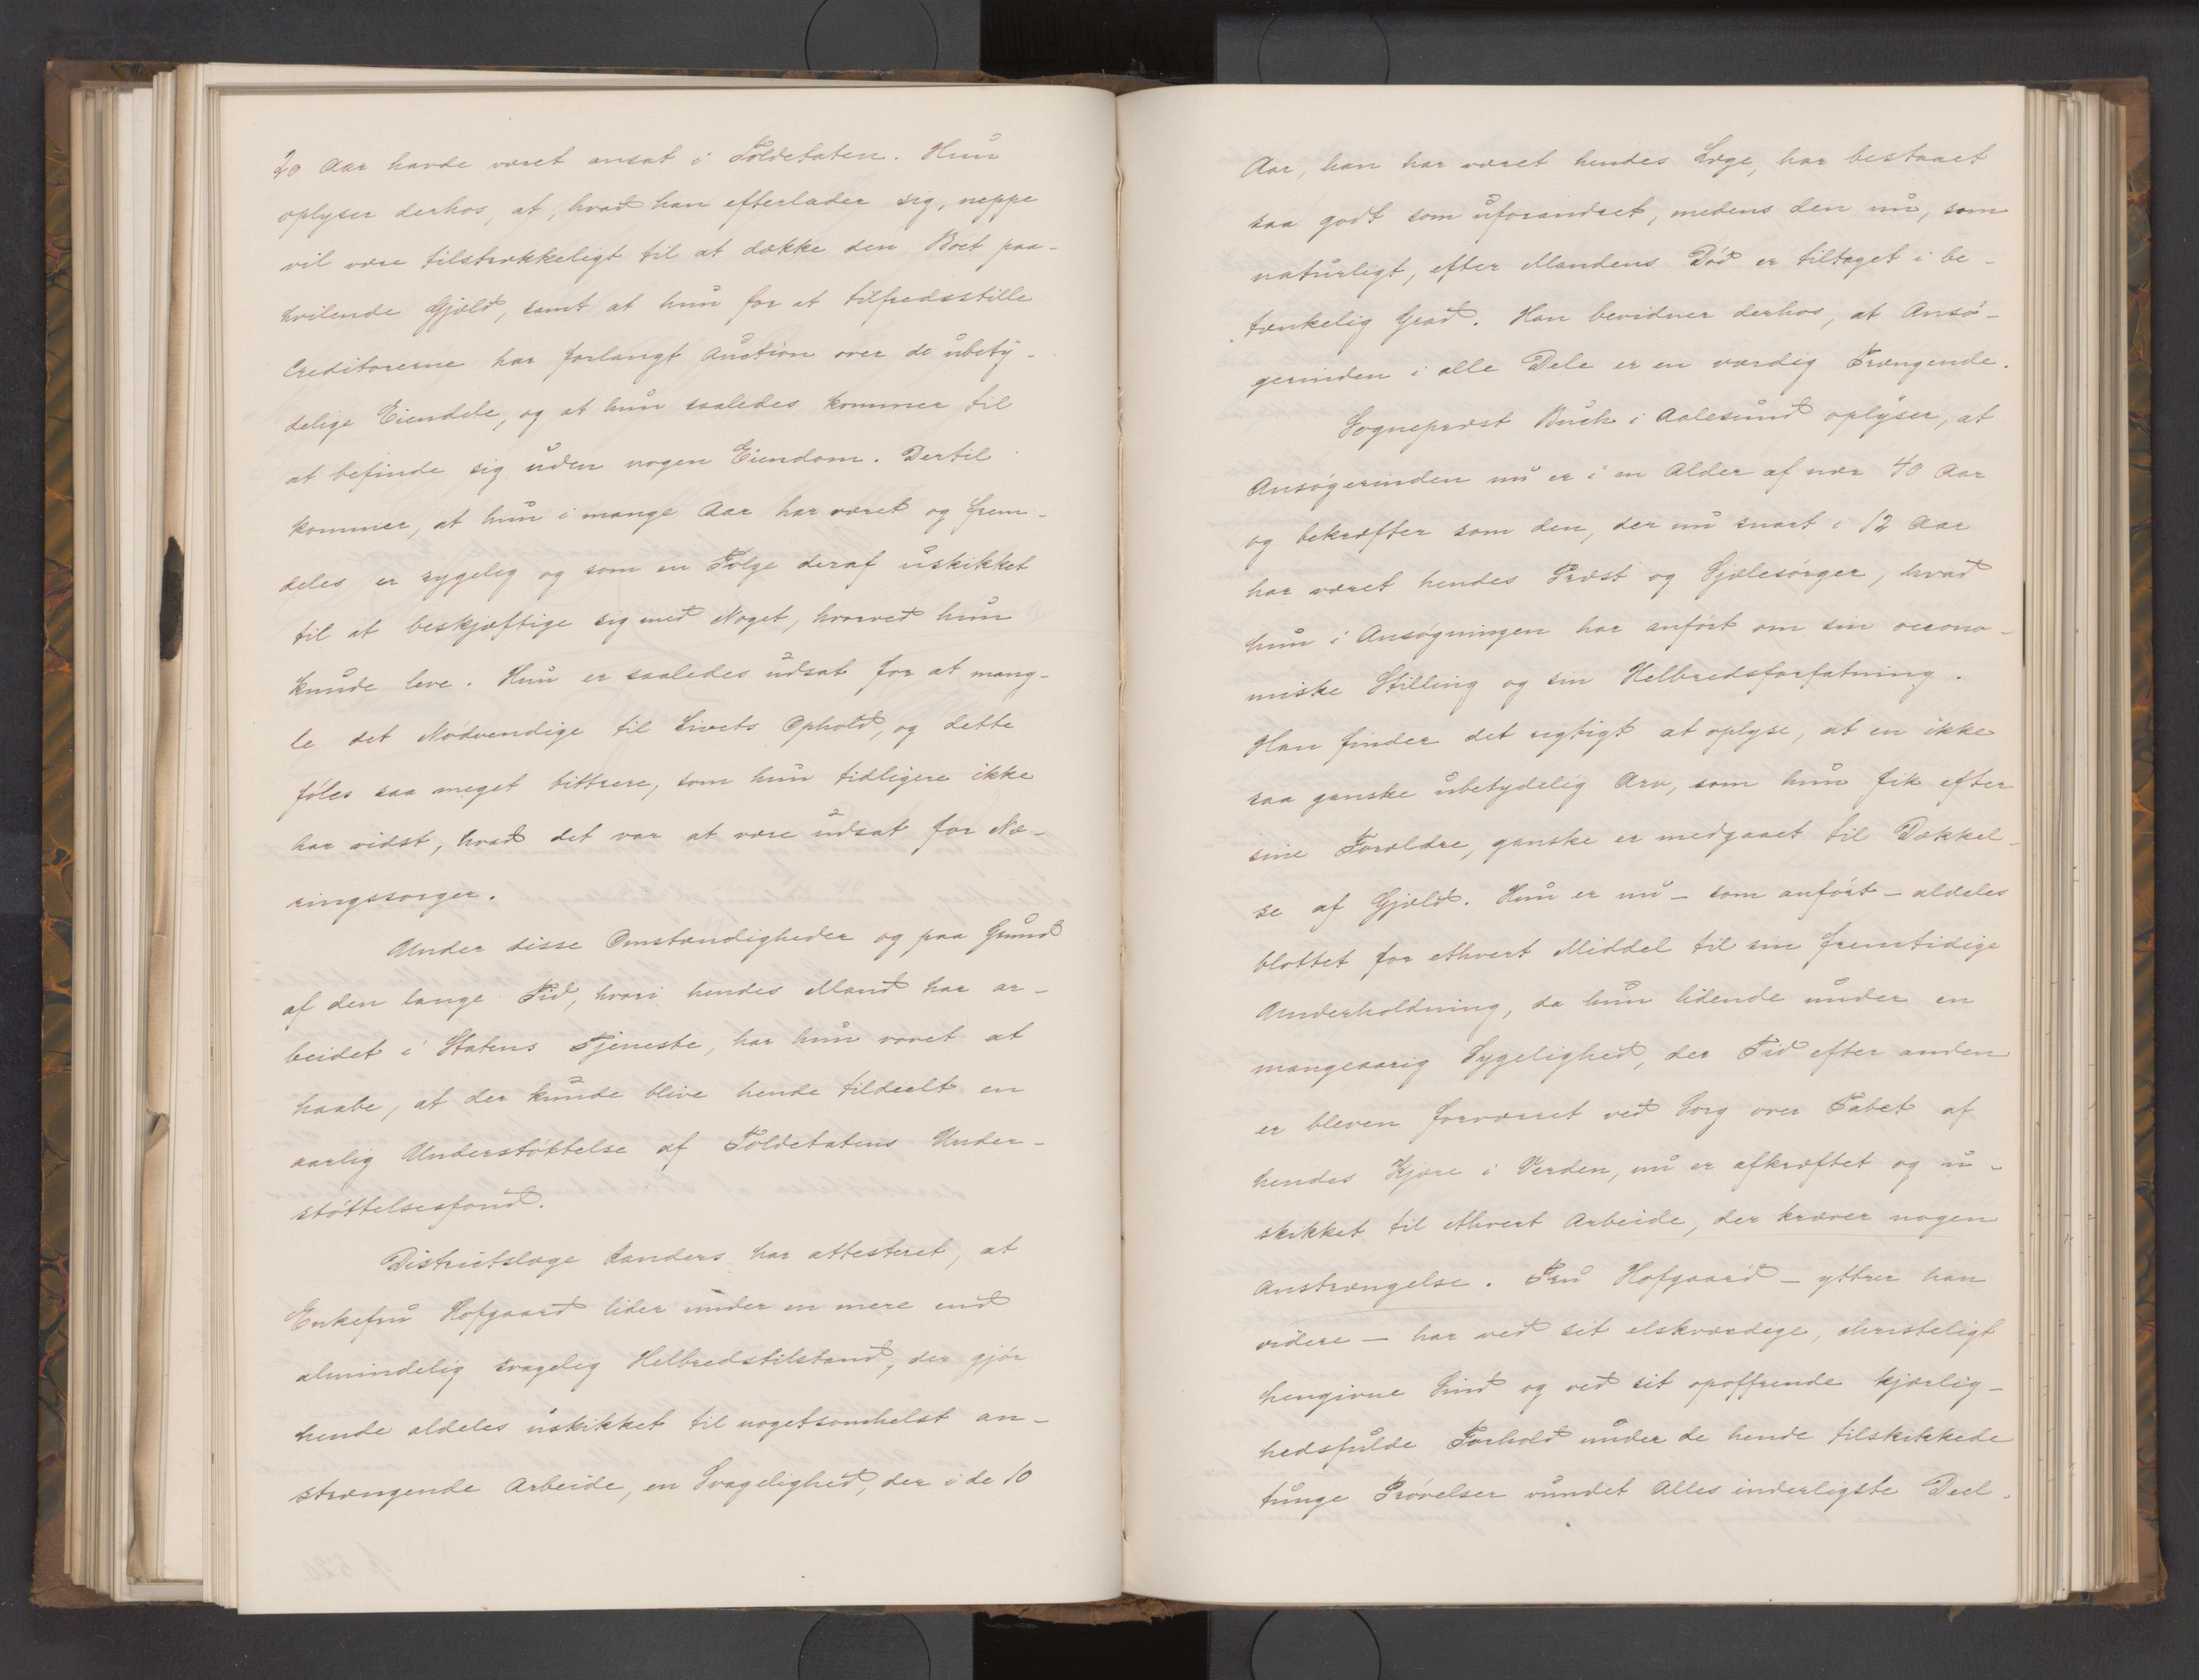 20 Aar havde været ansat i Toldetaten. Hun
oplyser derhos, at, hvad han efterlader sig, neppe
vil være tilstrækkeligt til at dække den Boet paa-
hvilende Gjæld, samt at hun for at tilfredsstille
Creditorerne har forlangt Auction over de ubety-
delige Eiendele, og at hun saaledes kommer til
at befinde sig uden nogen Eiendom. Dertil
kommer, at hun i mange Aar har været og frem-
deles er sygelig og som en Følge deraf uskikket
til at beskjæftige sig med Noget, hvorved hun
kunde leve. Hun er saaledes udsat for at mang-
le det Nødvendige til Livets Ophold, og dette
føles saa meget bittrere, som hun tidligere ikke
har vidst, hvad det var at være udsat for Næ-
ringssorger.
Under disse Omstændigheder og paa Grund
af den lange Tid, hvori hendes Mand har ar-
beidet i Statens Tjeneste, har hun vovet at
haabe, at der kunde blive hende tildeelt en
aarlig Understøttelse af Toldetatens Under-
støttelsesfond.
Districtslæge Randers har attesteret, at
Enkefru Hofgaard lider under en mere end
almindelig svagelig Helbredstilstand, der gjør
hende aldeles uskikket til nogetsomhelst an-
strængende Arbeide, en Svagelighed, der i de 10
Aar, han har været hendes Læge, har bestaaet
saa godt som uforandret, medens den nu, som
naturligt, efter Mandens Død er tiltaget i be-
tænkelig Grad. Han bevidner derhos, at Ansø-
gerinden i alle Dele er en værdig Trængende.
Sognepræst Buch i Aalesund oplyser, at
Ansøgerinden nu er i en Alder af nær 40 Aar
og bekræfter som den, der nu snart i 12 Aar
har været hendes Præst og Sjælesørger, hvad
hun i Ansøgningen har anført om sin oecono-
miske Stilling og sin Helbredsforfatning.
Han finder det rigtigt at oplyse, at en ikke
saa ganske ubetydelig Arv, som hun fik efter
sine Forældre, ganske er medgaaet til Dækkel-
se af Gjæld. Hun er nu – som anført – aldeles
blottet for ethvert Middel til sin fremtidige
Underholdning, da hun lidende under en
mangeaarig Sygelighed, der Tid efter anden
er bleven forværret ved Sorg over Tabet af
hendes Kjære i Verden, nu er afkræftet og u-
skikket til ethvert Arbeide, der kræver nogen
Anstrængelse. Fru Hofgaard – yttrer han
videre – har ved sit elskværdige, christeligt
hengivne Sind og ved sit opoffrende kjærlig-
hedsfulde Forhold under de hende tilskikkede
tunge Prøvelser vundet Alles inderligste Deel-